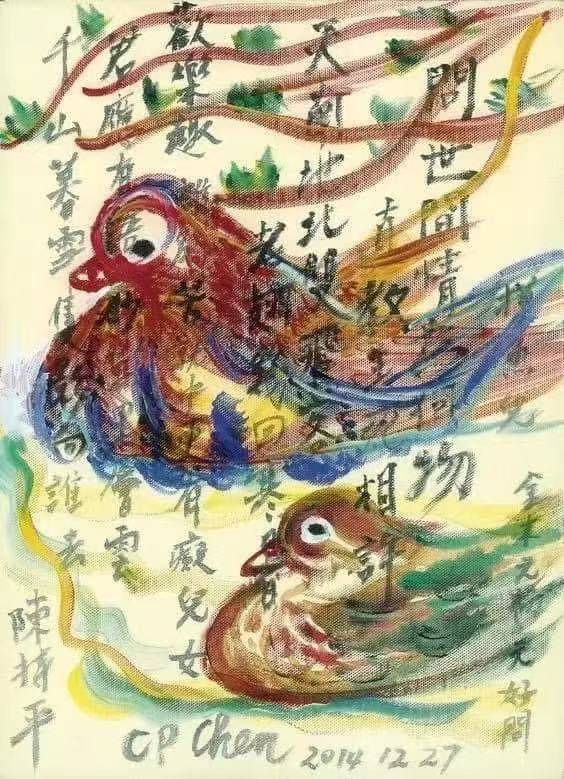 摸魚兒 金末元初元好問
問世間情為何物
直教生死相許
天南地北雙飛客
老翅幾回寒暑
歡樂趣離別苦就中更有癡兒女
君應有語渺萬里層雲
千山暮雪隻影向誰去
陳持平
CP Chen 2014 12 27